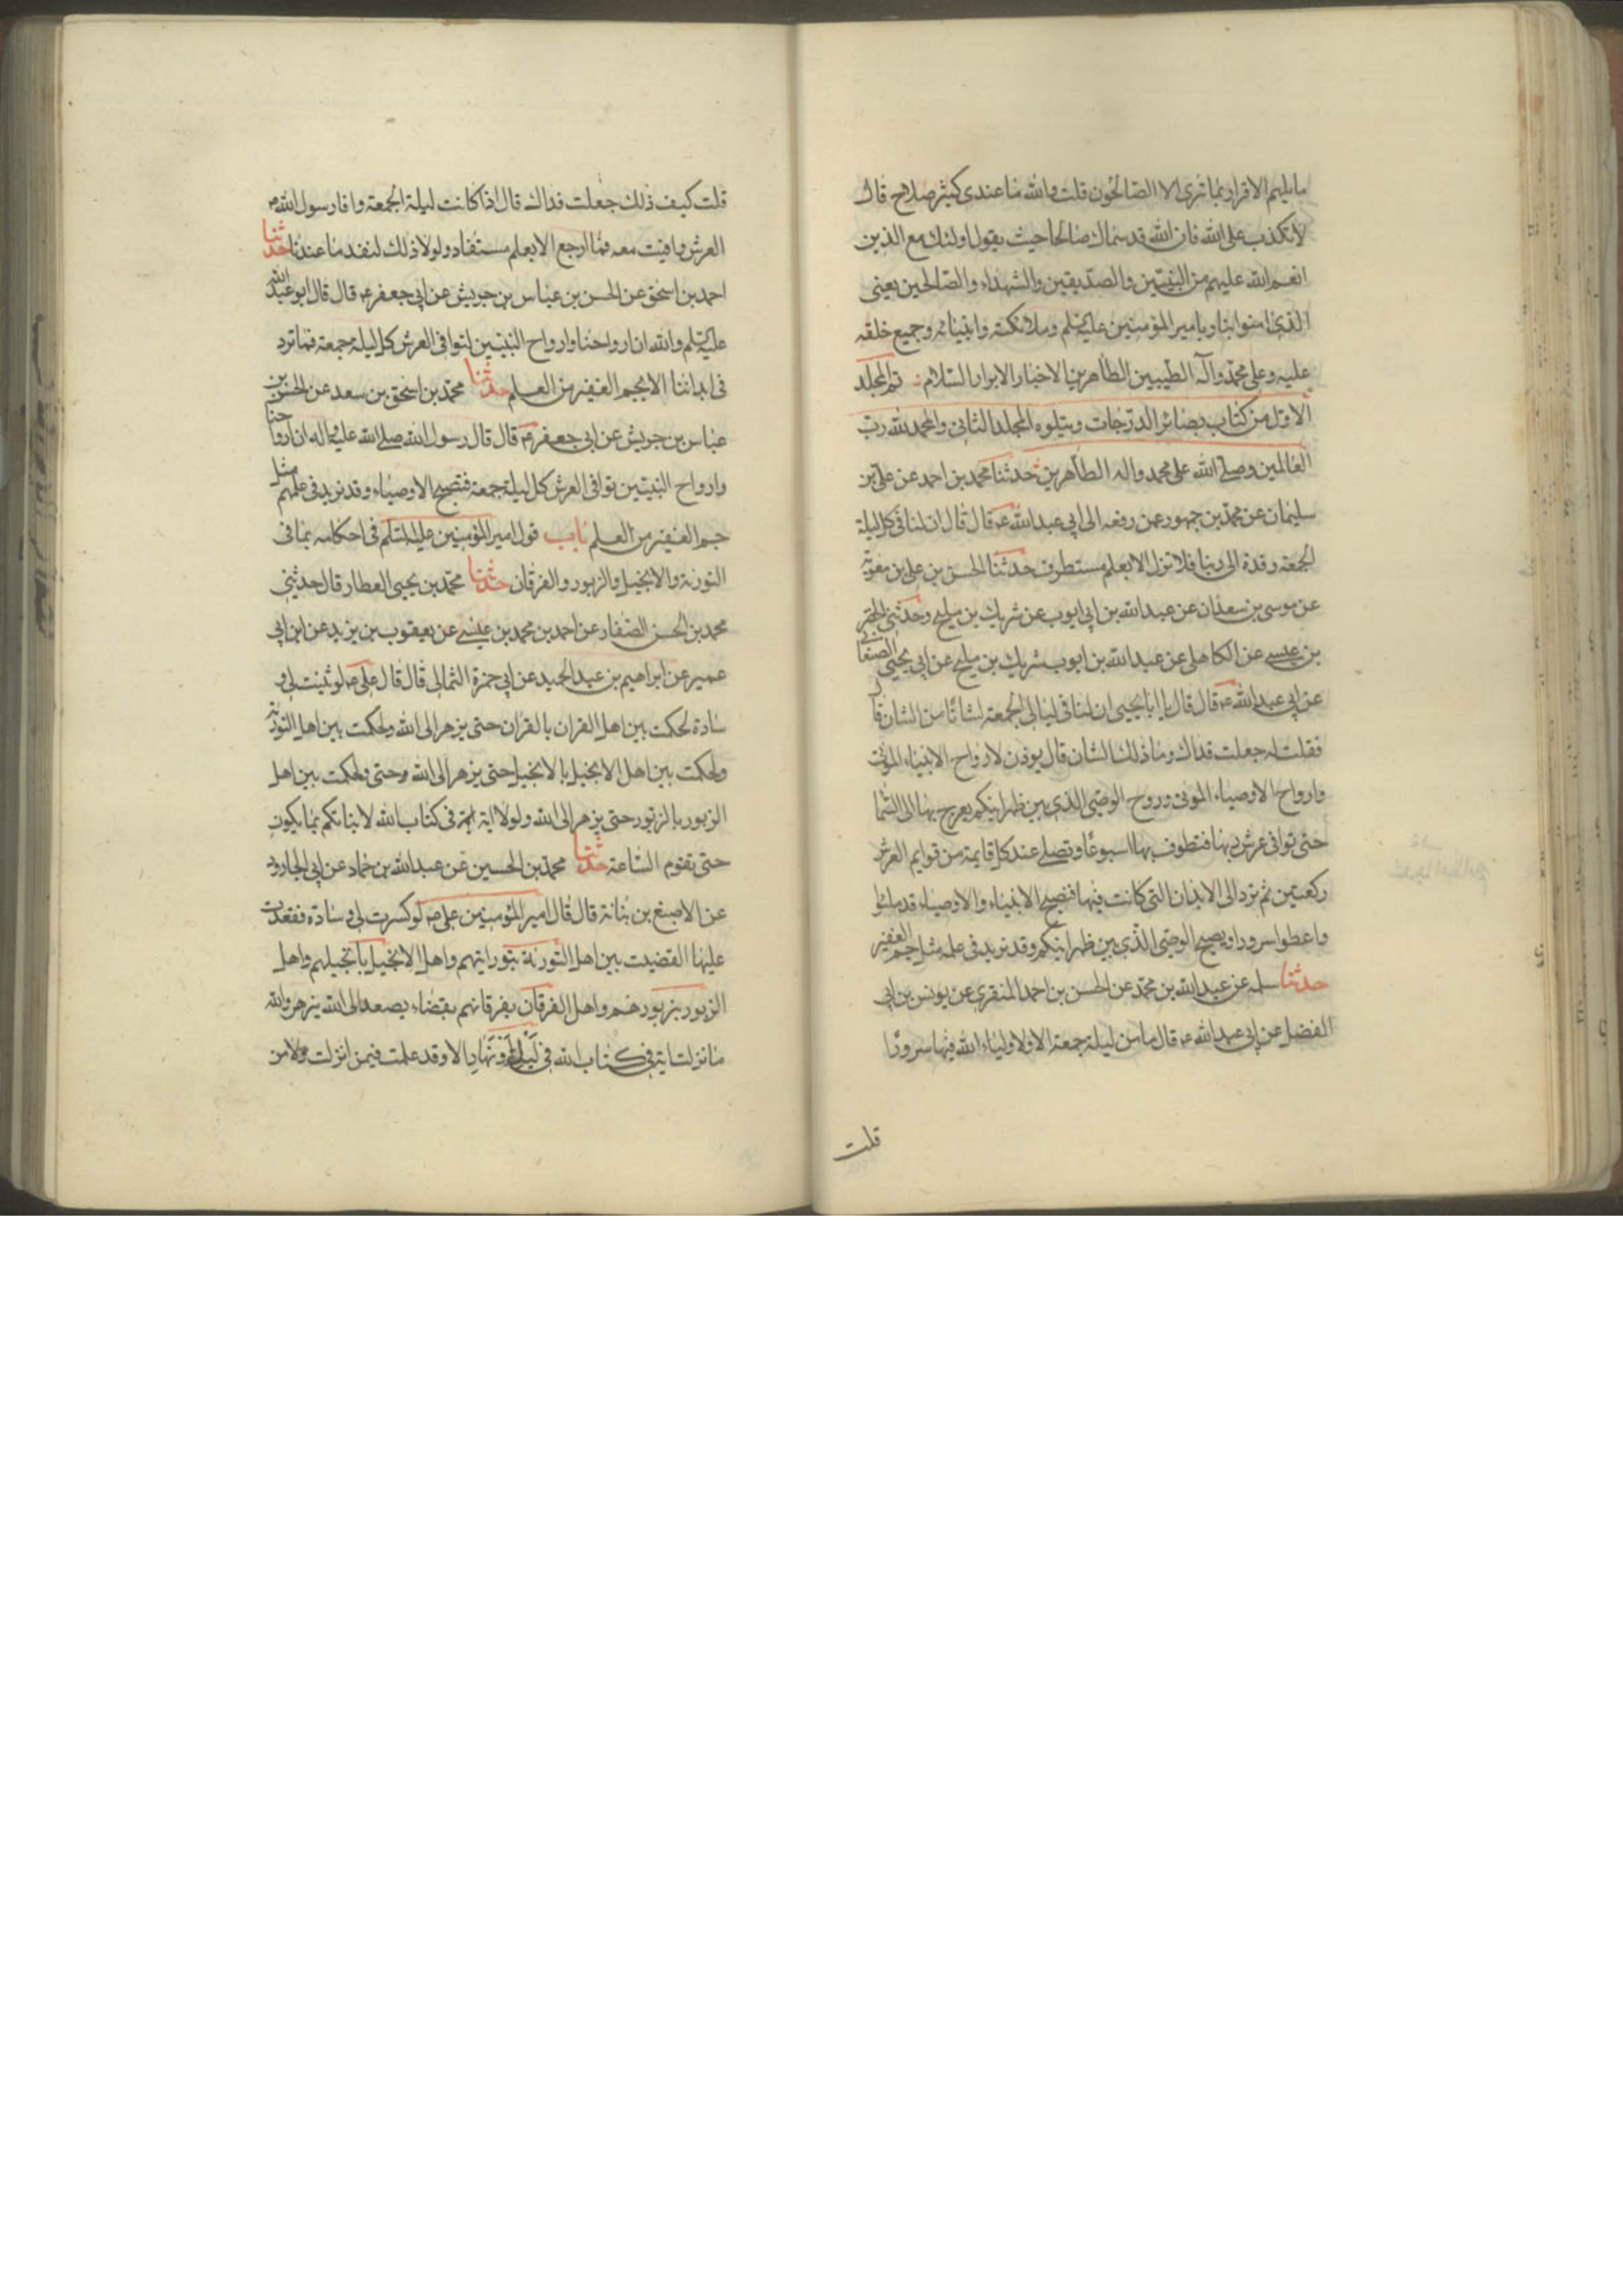 ما يلهم الاقرار بما ترى الا الصالحون قلت والله ما عندى كثير صلاح قال
لا تكذب على الله فان الله قد سماك صالحا حيث يقول اولئك مع الذين
انعم الله عليهم من النبيين والصديقين والشهداء والصالحين يعنى
الذى امنوا بنا وبامير المؤمنين عليه السلم وملائكته وانبيائه وجميع خلقه
عليه وعلى محمد وآله الطيبين الطاهرين الاخيار الابرار السلام تم المجلد
الاول من كتاب بصائر الدرجات ويتلوه المجلد الثانى والحمد لله رب
العالمين وصلى الله على محمد واله الطاهرين حدثنا محمد بن احمد عن على بن
سليمان عن محمد بن جمهور عمن رفعه الى ابى عبد الله ع قال قال ان لنا فى كل ليلة
الجمعة وفدة الى ربنا فلا ننزل الا بعلم مستطرف حدثنا الحسن بن على بن معوية
عن موسى بن سعدان عن عبد الله بن ابى ايوب عن شريك بن مليح وحدثنى الخضر
بن عيسى عن الكاهلى عن عبد الله بن ايوب شريك بن مليح عن ابى يحيى الصنعانى
عن ابى عبد الله ع قال قال يا ابا يحيى ان لنا فى ليالى الجمعة لشانا من الشان قال
فقلت له جعلت فداك وما ذلك الشان قال يوذن لارواح الانبياء الموتى
وارواح الاوصياء الموتى وروح الوصى الذى بين ظهرانيكم يعرج بها الى السما
حتى توافى عرش ربها فتطوف بها اسبوعا وتصلى عند كل قايمة من قوايم العرش
ركعتين ثم ترد الى الابدان التى كانت فيها فتصبح الانبياء والاوصياء قد ملئوا
واعطوا سرورا ويصبح الوصى الذى بين ظهرانيكم وقد زيد فى علمه مثل جم الغفير
حدثنا سلمه عن عبد الله بن محمد عن الحسن بن احمد المنقرى عن يونس بن ابى
الفضل عن ابى عبد الله ع قال ما من ليلة جمعة الا ولاولياء الله فيها سرورا
قلت
قلت كيف ذلك جعلت فداك قال اذا كانت ليلة الجمعة وافا رسول الله ص
العرش وافيت معه فما ارجع الا بعلم مستفاد ولولا ذلك لنفد ما عندنا حدثنا
احمد بن اسحق عن الحسن بن عباس بن جريش عن ابى جعفر ع قال قال ابو عبد الله
عليه السلم والله ان ارواحنا وارواح النبيين لتوافى العرش كل ليلة جمعة فما ترد
فى ابداننا الا بجم الغفير من العلم حدثنا محمد بن اسحق بن سعد عن الحسن بن
عباس بن جريش عن ابى جعفر ع قال قال رسول الله صلى الله عليه واله ان ارواحنا
وارواح النبيين توافى العرش كل ليلة جمعة فتصبح الاوصياء وقد زيد فى علمهم مثل
جم الغفير من العلم باب قول امير المؤمنين عليه السلم فى احكامه بما فى
التورية والانجيل والزبور والفرقان حدثنا محمد بن يحيى العطار قال حدثنى
محمد بن الحسن الصفار عن احمد بن محمد بن عيسى عن يعقوب بن يزيد عن ابن ابى
عمير عن ابراهيم بن عبد الحميد عن ابى حمزة الثمالى قال قال على ص لو ثنيت لى و
سادة لحكمت بين اهل القران بالقران حتى يزهر الى الله ولحكمت بين اهل التورية
ولحكمت بين اهل الانجيل بالانجيل حتى يزهر الى الله وحتى ولحكمت بين اهل
الزبور بالزبور حتى يزهر الى الله ولولا اية فى كتاب الله لانباتكم بما يكون
حتى تقوم الساعة حدثنا محمد بن الحسين عن عبد الله بن حماد عن ابى الجارود
عن الاصبغ بن نباتة قال قال امير المؤمنين على ص لو كسرت لى وسادة فقعدت
عليها لقضيت بين اهل التورية بتوراتهم واهل الانجيل بانجيلهم واهل
الزبور بزبورهم واهل الفرقان بفرقانهم بقضاء يصعد الى الله يزهر والله
ما نزلت اية فى كتاب الله فى ليل او نهار الا وقد علمت فيمن انزلت ولا من